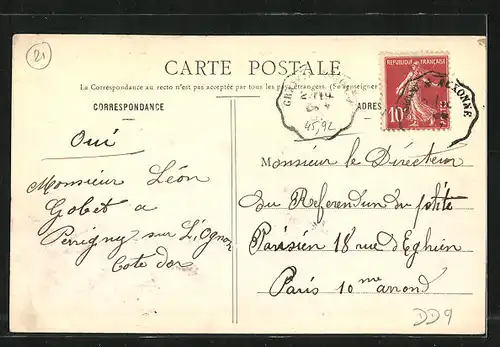 21
CARTE POSTALE
La Correspondance au recto n'est pas acceptée par tous les pays étrangers. (Se renseigner
CORRESPONDANCE
ADRES
REPUBLIQUE FRANÇAISE
10
GR
AUXONNE
45,92
Oui
Monsieur Léon
Gobet a
Perrigny sur L'Ognon
Cote dor
Monsieur le Directeur
Du Referendum du petite
Parisien 18 rue d'Eghien
Paris 10me arrond
DD9